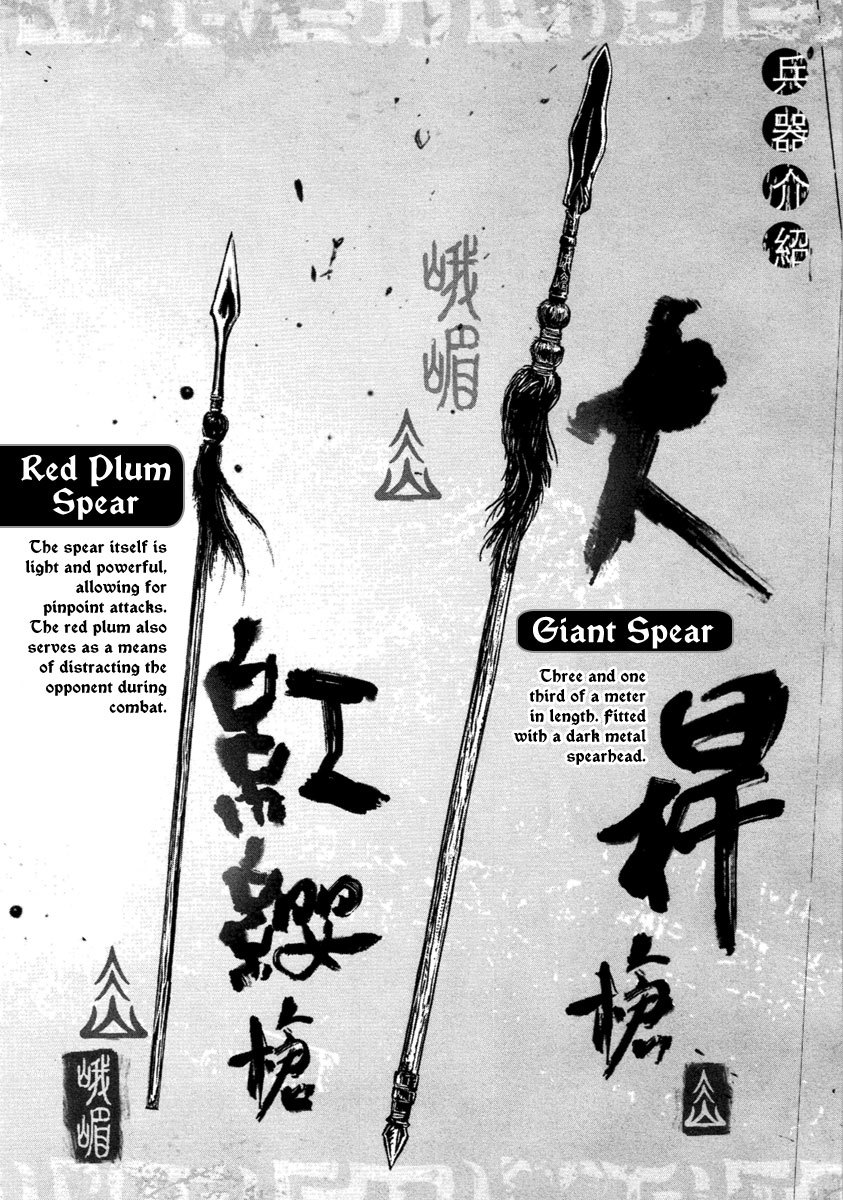 兵器介紹
峨嵋
大桿槍
Red Plum
Spear
The spear itself is
light and powerful,
allowing for
pinpoint attacks.
The red plum also
serves as a means
of distracting the
opponent during
combat.
紅纓槍
Giant Spear
Three and one
third of a meter
in length. Fitted
with a dark metal
spearhead.
峨嵋